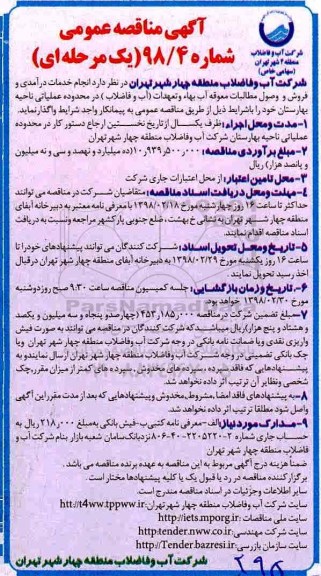 آگهی مناقصه عمومی
شماره ۹۸/۴ (یک مرحله ای)
شرکت آب و فاضلاب
منطقه ۴ شهر تهران
(سهامی خاص)
شرکت آب و فاضلاب منطقه چهار شهر تهران در نظر دارد انجام خدمات درآمدی و
فروش و وصول مطالبات معوقه آب بهاء وتعهدات (آب و فاضلاب) در محدوده عملیاتی ناحیه
بهارستان خود را باشرایط ذیل از طریق مناقصه عمومی به پیمانکار واجد شرایط واگذار نماید.
۱-مدت ومحل اجراء: ظرف یکسال از تاریخ نخستین ارجاع دستور کار در محدوده
عملیاتی ناحیه بهارستان شرکت آب وفاضلاب منطقه چهار شهر تهران
۲-مبلغ برآوردی مناقصه: ۱۰٫۹۳۹٫۵۰۰٫۰۰۰ (ده میلیارد و نهصد و سی و نه میلیون
و پانصد هزار) ریال
۳-محل تامین اعتبار: از محل اعتبارات جاری شرکت
۴-مهلت ومحل دریافت اسناد مناقصه: متقاضیان شرکت در مناقصه می توانند
حداکثر تا ساعت ۱۶ روز چهارشنبه مورخ ۱۳۹۸/۰۲/۱۸ با معرفی نامه معتبر به دبیرخانه آبفای
منطقه چهار شهر تهران به نشانی خ بهشت، ضلع جنوبی پارکشهر مراجعه ونسبت به دریافت
اسناد مناقصه اقدام نمایند.
۵-تاریخ ومحل تحویل اسناد: شرکت کنندگان می توانند پیشنهادهای خود را تا
ساعت ۱۶ روز یکشنبه مورخ ۱۳۹۸/۰۲/۲۹ به دبیرخانه آبفای منطقه چهار شهر تهران درقبال
اخذ رسید تحویل نمایند.
۶-تاریخ وزمان بازگشایی: جلسه کمیسیون مناقصه ساعت ۹:۳۰ صبح روزدوشنبه
مورخ ۱۳۹۸/۰۲/۳۰ خواهد بود.
۷-مبلغ تضمین شرکت درمناقصه ۴۵۳٫۱۸۵٫۰۰۰ (چهارصدو پنجاه و سه میلیون و یکصد
و هشتاد و پنج هزار)ریال میباشدکه شرکت کنندگان در مناقصه می توانند به صورت فیش
واریزی نقدی ویا ضمانت نامه بانکی در وجه شرکت آب وفاضلاب منطقه چهار شهر تهران ویا
چک بانکی تضمینی در وجه شرکت آب وفاضلاب منطقه چهار شهر تهران ارسال نمایندو به
پیشنهادهایی که فاقد سپرده، سپرده های مخدوش، سپرده های کمتر از میزان مقرر،چک
شخصی ونظایر آن ترتیب اثر داده نخواهد شد.
۸-به پیشنهادهای فاقد امضا،مشروط،مخدوش وپیشنهادهایی که بعد از مدت مقرراین آگهی
واصل شود مطلقا ترتیب اثر داده نخواهد شد.
۹-مدارک مورد نیاز:الف-معرفی نامه کتبی ب-فیش بانکی به مبلغ ۲۱۸٫۰۰۰ ریال به
حساب جاری شماره ۲-۲۲۰۵۲۲۰-۴۰-۸۰۶ نزدبانک سامان شعبه بازار بنام شرکت آب و
فاضلاب منطقه چهار شهر تهران
ضمناً هزینه درج آگهی مربوط به این مناقصه به عهده برنده مناقصه می باشد.
برگزار کننده مناقصه در رد یا قبول یک یا کلیه پیشنهادها مختار است.
سایر اطلاعات وجزئیات در اسناد مناقصه مندرج است.
سایت شرکت آب و فاضلاب منطقه چهار شهر تهران:http://t4ww.tppww.ir
سایت ملی مناقصات:http://iets.mporg.ir
سایت شرکت مهندسی:http:tender.nww.co.ir
سایت سازمان بازرسی:http://Tender.bazresi.ir
شرکت آب وفاضلاب منطقه چهار شهر تهران